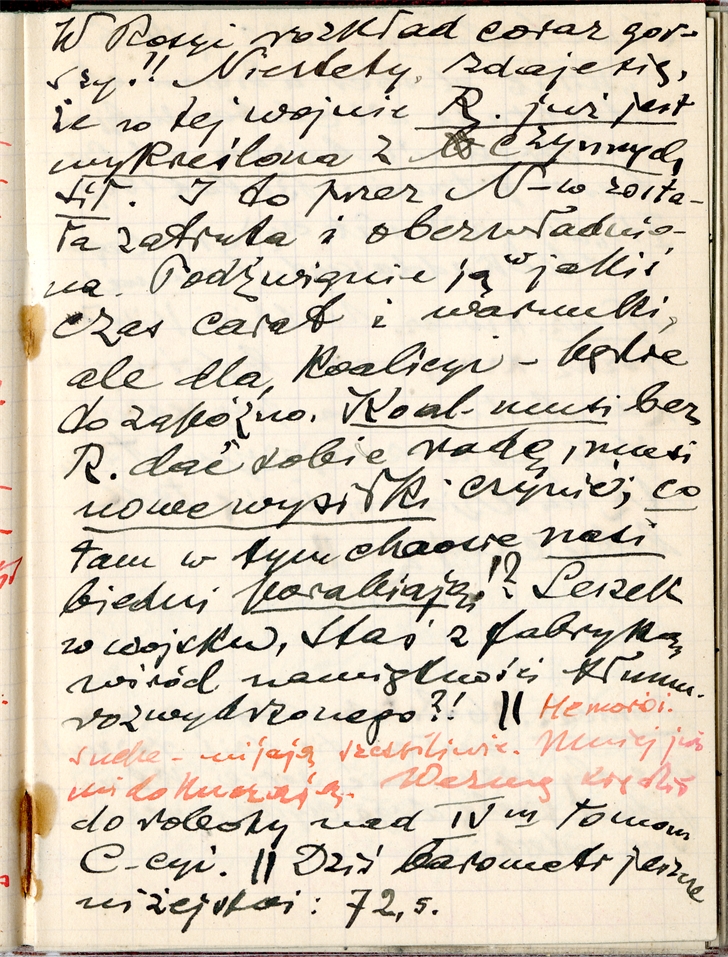 W Rosyi rozkład coraz gor-
szy!! Niestety, zdaje się,
że w tej wojnie R. już jest
wykreślona z czynnych
sił. I to przez N-w zosta-
ła zatruta i obezwładnio-
na. Podźwignie ją w jakiś
czas carat i warunki,
ale dla Koalicyi - będzie
to zapóźno. Koal. musi bez
R. dać sobie radę, musi
nowe wysiłki czynić; co
tam w tym chaosie nasi
biedni porabiają!? Leszek
w wojsku, Staś z fabryką
wśród namiętności tłumu
rozwydrzonego?! || Hemoroi.
suche - mijają szczęśliwie. Mniej już
mi dokuczają. Wezmę się dziś
do roboty nad IVm tomem
C-cyi. || Dziś barometr jeszcze
niżej stoi: 72,5.